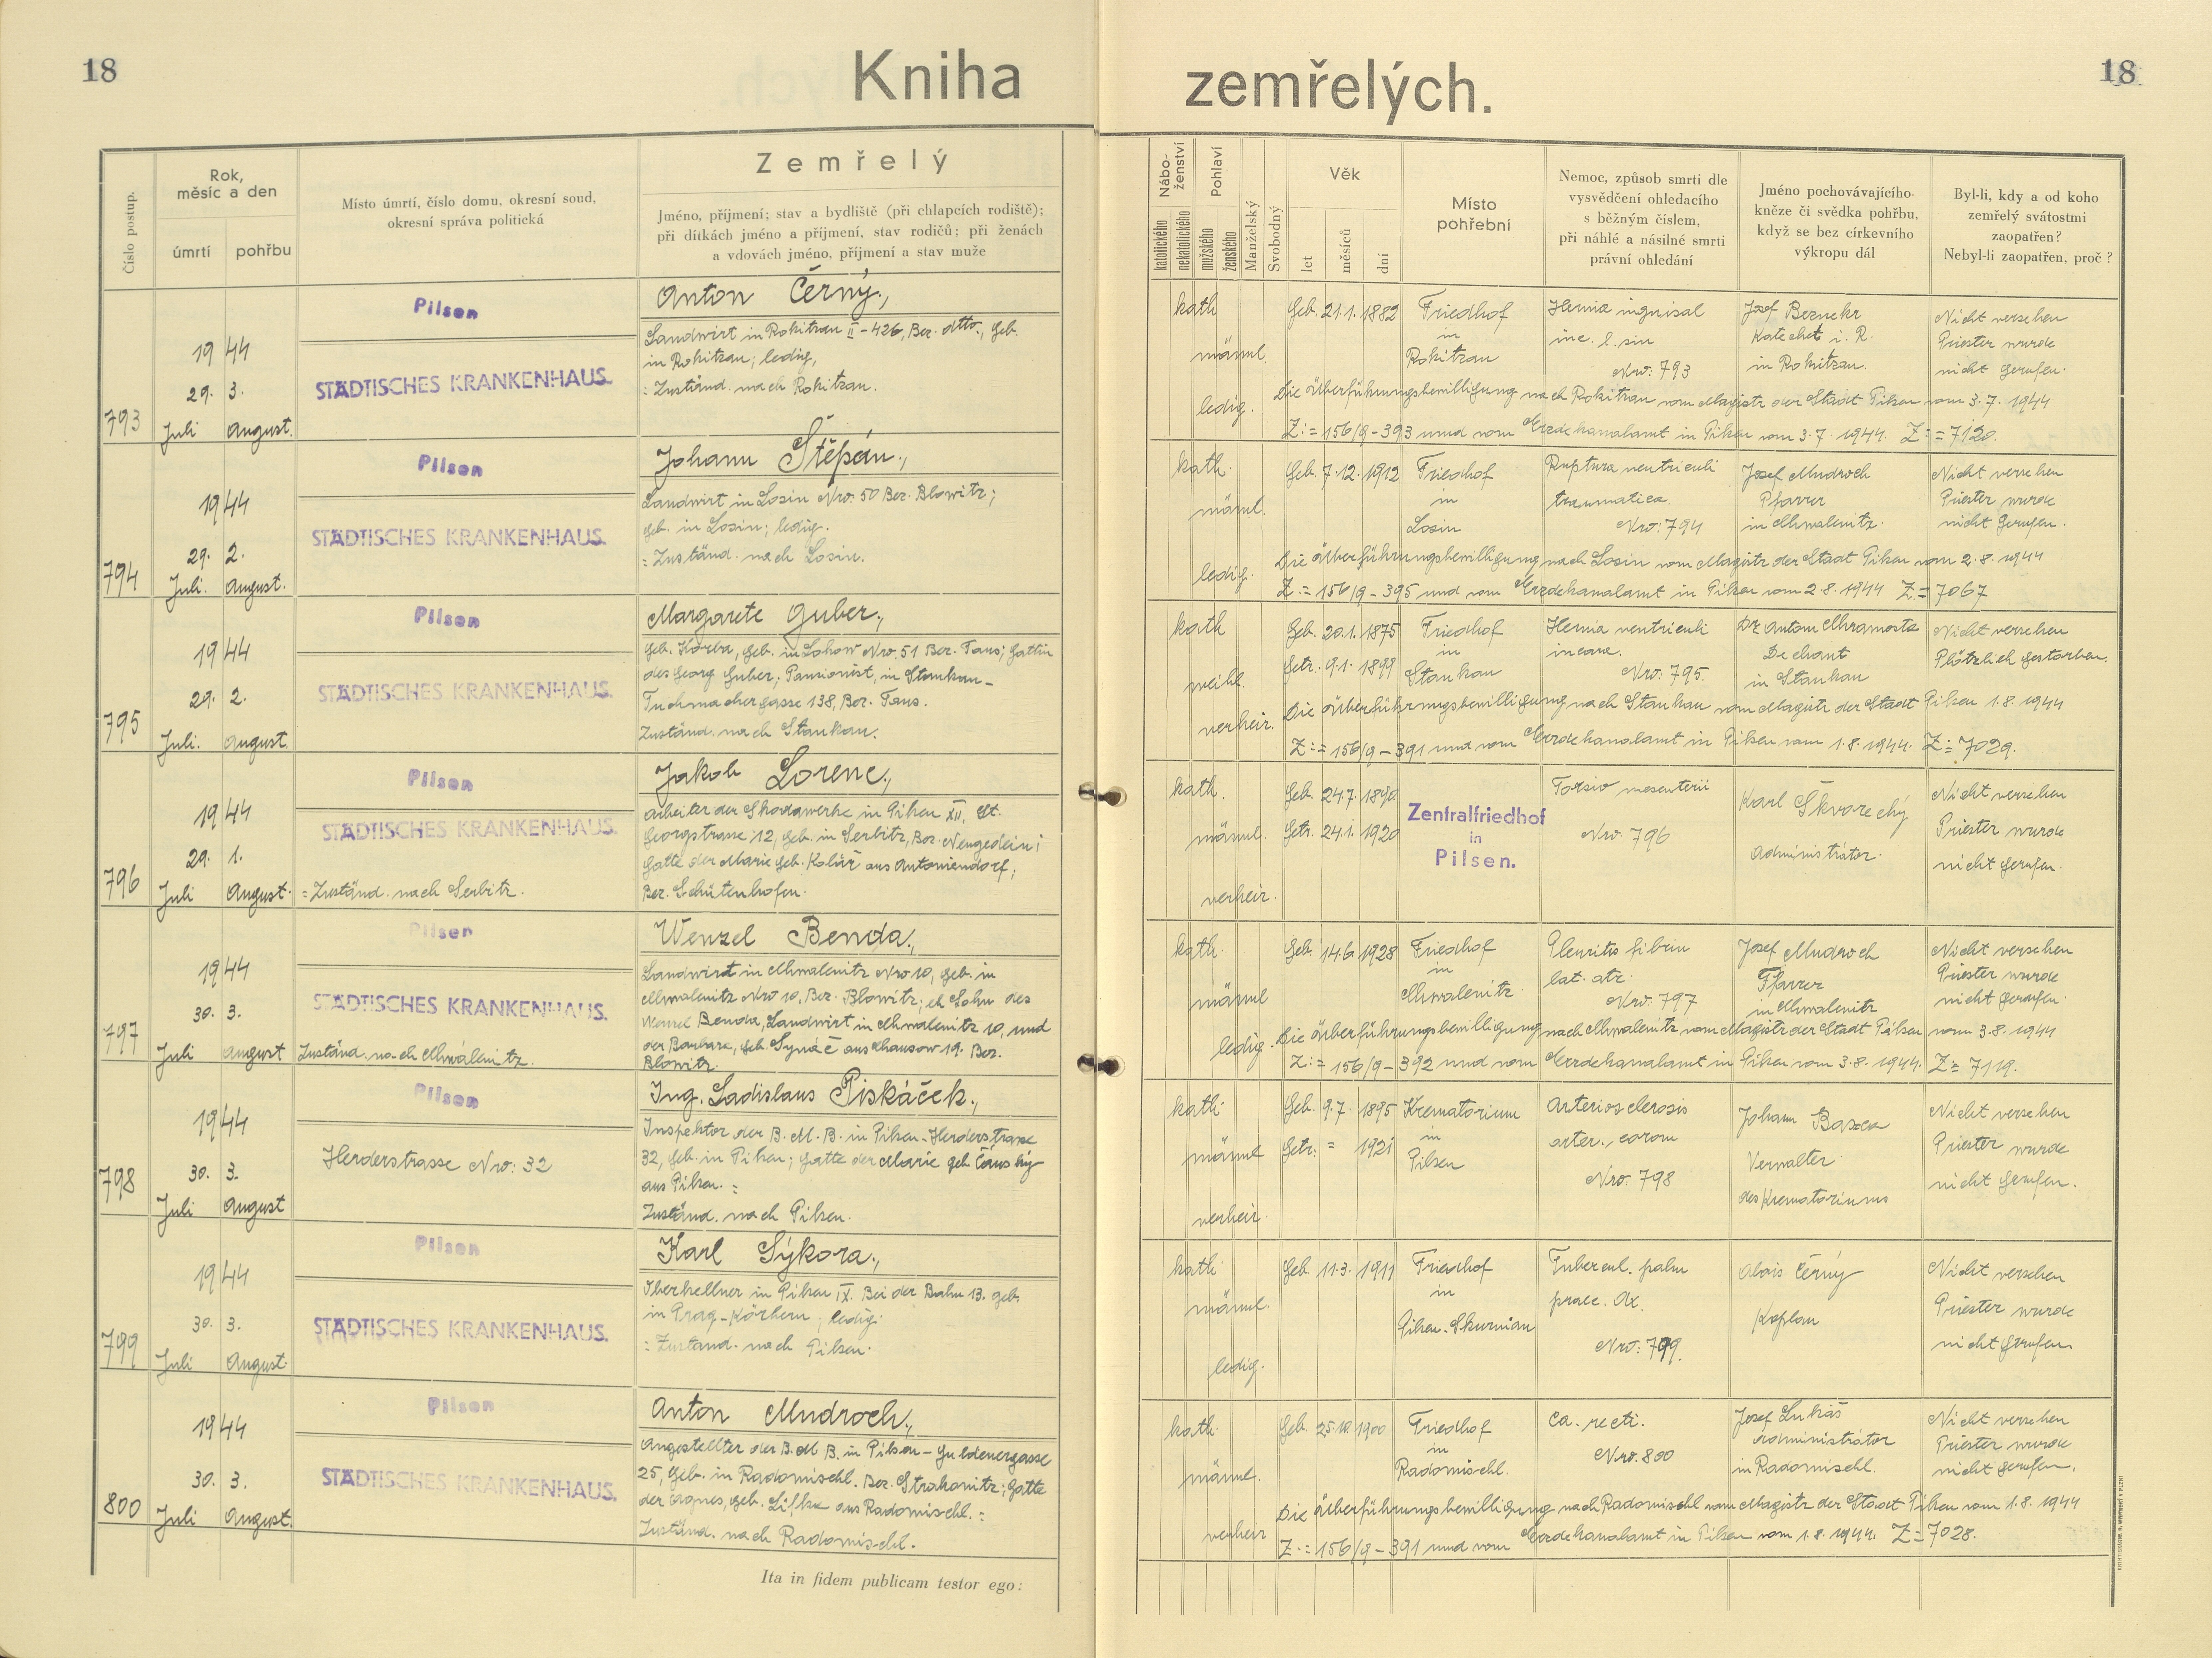 18
Kniha zemřelých.
18
Číslo postup.
Rok, měsíc a den
úmrtí
pohřbu
Místo úmrtí, číslo domu, okresní soud,
okresní správa politická
Zemřelý
Jméno, příjmení; stav a bydliště (při chlapcích rodiště);
při dítkách jméno a příjmení, stav rodičů; při ženách
a vdovách jméno, příjmení a stav muže
Nábo-
ženství
katolického
nekatolického
Pohlaví
mužského
ženského
Manželský
Svobodný
Věk
let
měsíců
dní
Místo
pohřební
Nemoc, způsob smrti dle
vysvědčení ohledacího
s běžným číslem,
při náhlé a násilné smrti
právní ohledání
Jméno pochovávajícího
kněze či svědka pohřbu,
když se bez církevního
výkropu dál
Byl-li, kdy a od koho
zemřelý svátostmi
zaopatřen?
Nebyl-li zaopatřen, proč?
793
1944
29. 3.
Juli August.
Pilsen
STÄDTISCHES KRANKENHAUS.
Anton Černý.,
Landwirt in Rokitzan II-426, Bez. dtto., geb.
in Rokitzan; ledig,
: Zuständ. nach Rokitzan.
kath
männl.
ledig.
Geb. 21.1. 1882
Friedhof
in
Rokitzan
Hernia inguisal
inc. l. sin
Nro: 793
Josef
Katechet i. R.
in Rokitzan.
Nicht versehen
Priester wurde
nicht gerufen.
Die Überführungsbewilligung nach Rokitzan vom Magistr der Stadt Pilsen vom 3.7. 1944
Z:= 156/9-393 und vom Erzdekanalamt in Pilsen vom 3.7. 1944. Z:=7120.
794
1944
29. 2.
Juli. August.
Pilsen
STÄDTISCHES KRANKENHAUS.
Johann Štěpán.,
Landwirt in Losin Nro: 50 Bez. Blowitz;
geb. in Losin; ledig.
: Zuständ. nach Losin.
kath.
männl.
ledig.
Geb. 7.12. 1912
Friedhof
in
Losin
Ruptura ventriculi
traumatica.
Nro: 794
Josef Mudroch
Pfarrer
in Chwalenitz.
Nicht versehen
Priester wurde
nicht gerufen.
Die Überführungsbewilligung nach Losin vom Magistr der Stadt Pilsen vom 2.8.1944
Z:= 156/9-395 und vom Erzdekanalamt in Pilsen vom 2.8.1944 Z:= 7067
795
1944
29. 2.
Juli. August.
Pilsen
STÄDTISCHES KRANKENHAUS.
Margarete Guber.,
geb. in Lohow Nro. 51 Bez. Taus; Gattin
des Georg Guber; Pansionist, in Stankau-
Tuchmachergasse 138, Bez. Taus.
Zuständ. nach Stankau.
kath
weibl.
verheir.
Geb. 20.1. 1875
Getr. 9.1. 1899
Friedhof
in
Stankau
Hernia ventriculi
incarc.
Nro: 795.
Dr. Anton
Dechant
in Stankau
Nicht versehen
Plötzlich gestorben.
Die Überführungsbewilligung nach Stankau vom Magistr der Stadt Pilsen 1.8.1944
Z:= 156/9-391 und vom Erzdekanalamt in Pilsen vom 1.8.1944. Z:= 7029.
796
1944
29. 1.
Juli August.
Pilsen
STÄDTISCHES KRANKENHAUS.
: Zuständ. nach Serbitz.
Jakob Lorenc.,
Arbeiter der Skodawerke in Pilsen XII, St.
Georgstrasse 12, geb. in Serbitz, Bez. Neugedein;
Gatte der Marie geb. Kolář aus Antoniendorf;
Bez. Schüttenhofen.
kath.
männl.
verheir.
Geb. 24.7. 1890
Getr. 24.1. 1920
Zentralfriedhof
in
Pilsen.
Torsio mesenterii
Nro. 796
Karl
Administrátor.
Nicht versehen
Priester wurde
nicht gerufen.
797
1944
30. 3.
Juli August
Pilsen
STÄDTISCHES KRANKENHAUS.
Zuständ. nach Chwálenitz.
Wenzel Benda.,
Landwirt in Chwalenitz Nro 10, geb. in
Chwalenitz Nro 10, Bez. Blowitz; eh. Sohn des
Wenzel Benda, Landwirt in Chwalenitz 10, und
der Barbara, geb. aus 19. Bez.
Blowitz.
kath.
männl
ledig.
Geb. 14.6. 1928
Friedhof
in
Chwalenitz.
Pleuritis fibrin
lat. atr.
Nro: 797
Josef Mudroch
Pfarrer
in Chwalenitz
Nicht versehen
Priester wurde
nicht gerufen.
Die Überführungsbewilligung nach Chwalenitz vom Magistr der Stadt Pilsen vom 3.8.1944
Z:= 156/9-392 und vom Erzdekanalamt in Pilsen vom 3.8.1944. Z:= 7119.
798
1944
30. 3.
Juli August
Pilsen
Herderstrasse Nro: 32
Ing. Ladislaus Piskáček.,
Inspektor der B.M.B. in Pilsen-Herderstrasse
32, geb. in Pilsen; Gatte der Marie geb.
aus Pilsen. :
Zuständ. nach Pilsen.
kath.
männl
verheir.
Geb. 9.7. 1895
Getr. = 1921
Krematorium
in
Pilsen
Arteriosclerosis
arter., coron
Nro: 798
Johann
Verwalter
des Krematoriums
Nicht versehen
Priester wurde
nicht gerufen.
799
1944
30. 3.
Juli August.
Pilsen
STÄDTISCHES KRANKENHAUS.
Karl Sýkora.,
Oberkellner in Pilsen IX. Bei der Bahn 13. geb.
in Prag-Körbern; ledig.
: Zuständ. nach Pilsen.
kath.
männl.
ledig.
Geb. 11.3. 1911
Friedhof
in
Pilsen-Skurnian
Tubercul. palm
praec. dx.
Nro: 799.
Alois Černý
Kaplan
Nicht versehen
Priester wurde
nicht gerufen.
800
1944
30. 3.
Juli August.
Pilsen
STÄDTISCHES KRANKENHAUS.
Anton Mudroch.,
Angestellter der B.M.B. in Pilsen - Guldenergasse
25, geb. in Radomischl. Bez. Strakonitz; Gatte
der Agnes, geb. Lifka aus Radomischl. :
Zuständ. nach Radomischl.
kath.
männl.
verheir
Geb. 25.10. 1900
Friedhof
in
Radomischl.
Ca. recti.
Nro. 800
Josef Lukáš
Administrátor
in Radomischl.
Nicht versehen
Priester wurde
nicht gerufen.
Die Überführungsbewilligung nach Radomischl vom Magistr der Stadt Pilsen vom 1.8.1944
Z:= 156/9-391 und vom Erzdekanalamt in Pilsen vom 1.8.1944. Z:= 7028.
Ita in fidem publicam testor ego: